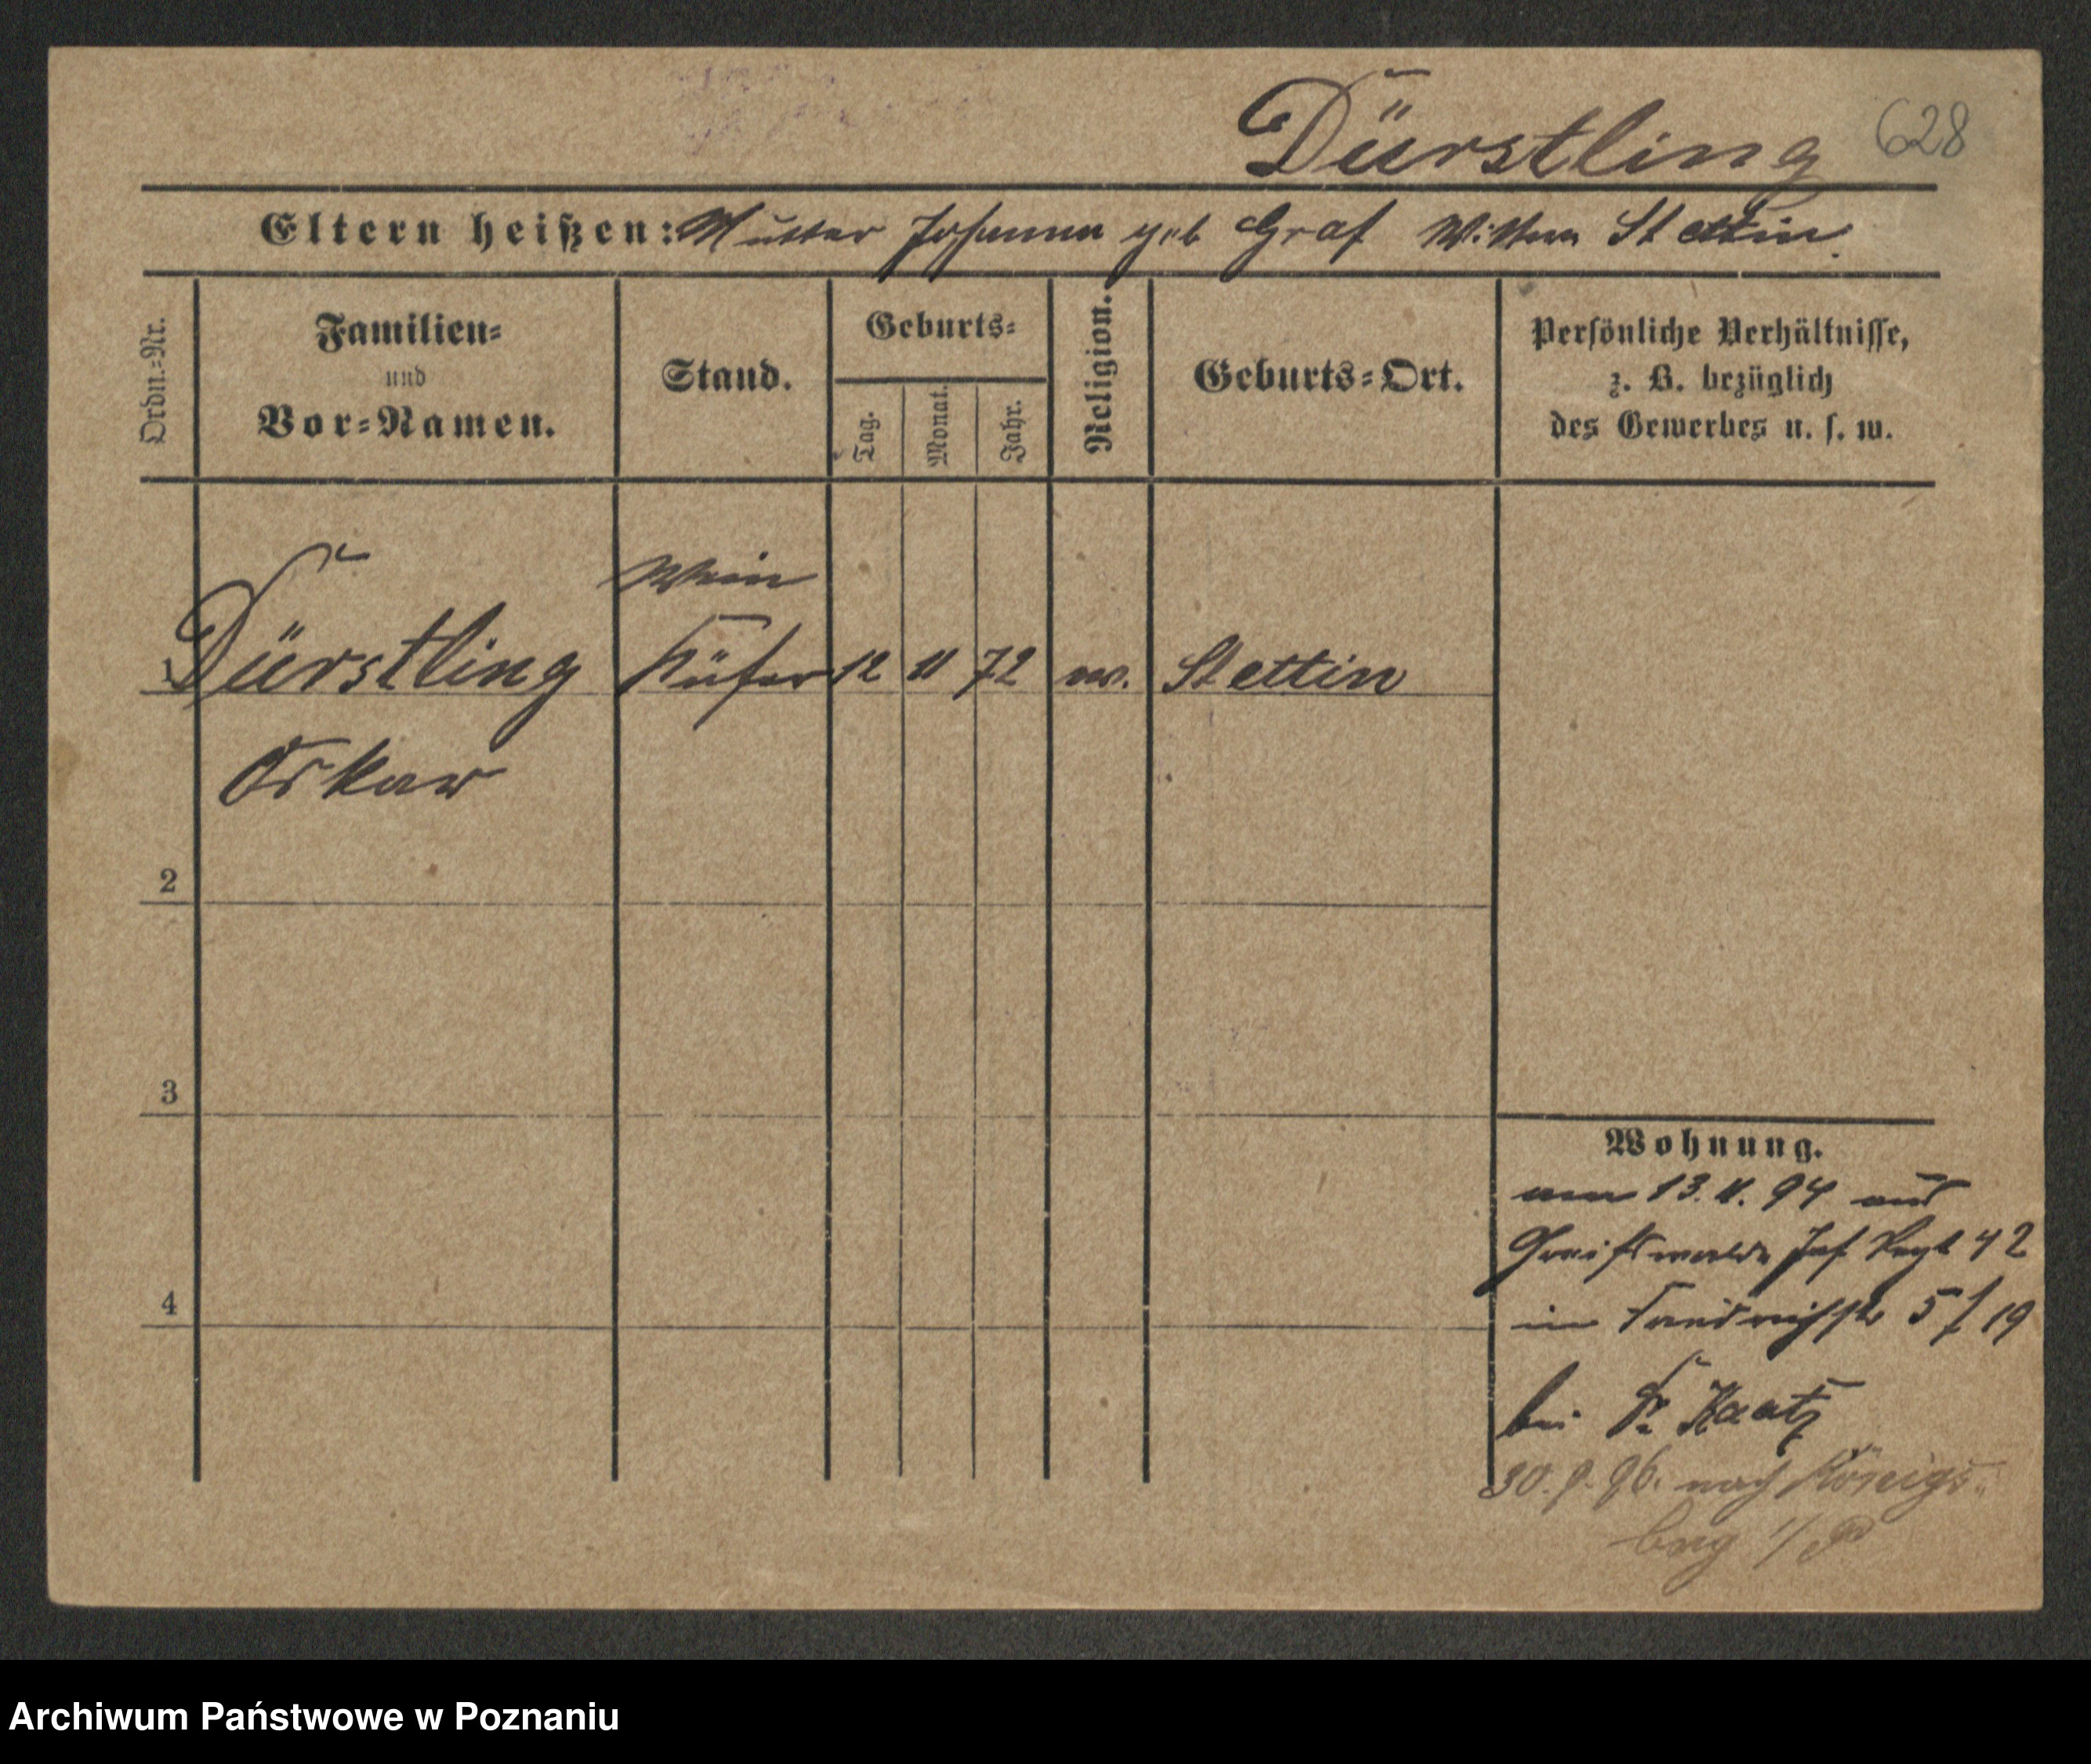 Dürstling 628
Eltern heißen: Mutter Johanna geb Graf Wittwe Stettin.
Ordn.=Nr.
Familien=
und
Vor=Namen.
Stand.
Geburts=
Tag.
Monat.
Jahr.
Religion.
Geburts=Ort.
Persönliche Verhältnisse,
z. B. bezüglich
des Gewerbes u. s. w.
Wein
1 Dürstling Küfer 12 11 72 ev. Stettin
Oskar
2
3
4
Wohnung.
am 13. 11. 94 aus
Greifswalde Inf Regt 42
in 5/19
bei Fr Kaatz
30. 9. 96. nach Königs-
berg i/P
Archiwum Państwowe w Poznaniu